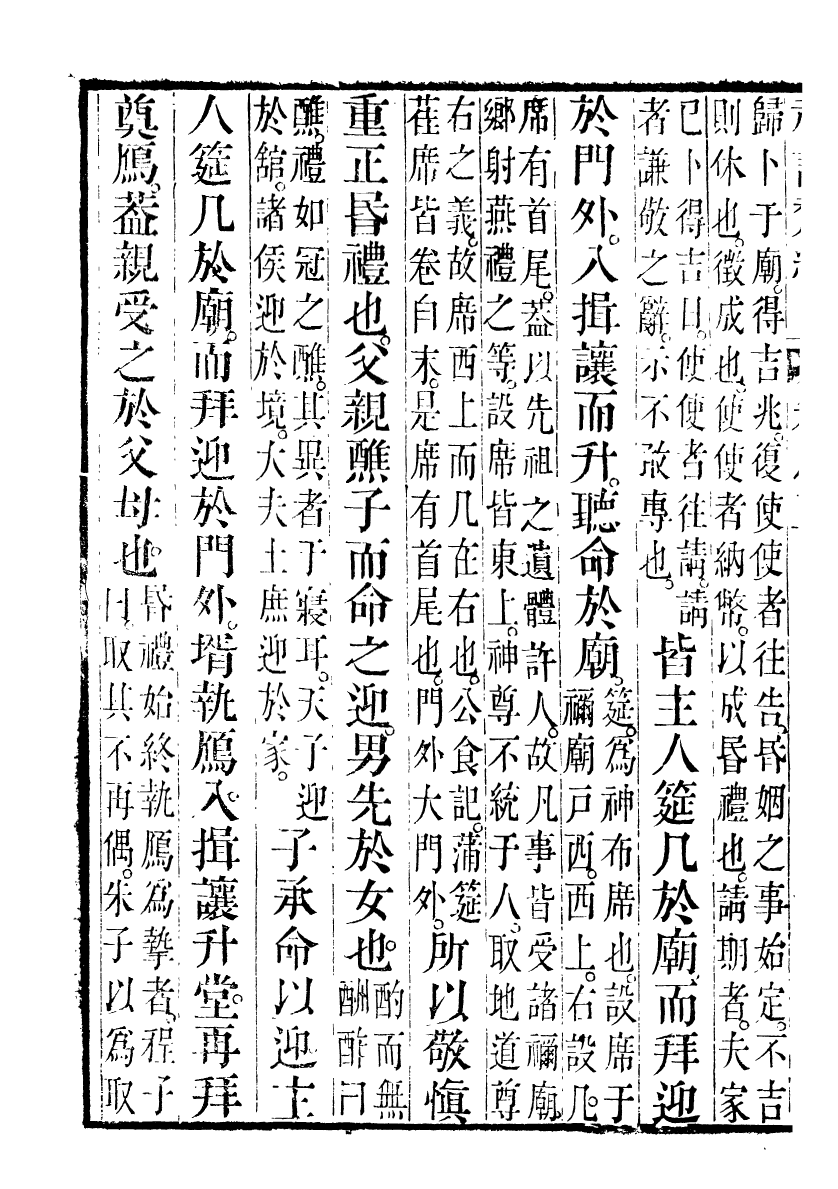 歸卜于廟。得吉兆。復使使者往告。昏姻之事始定。不吉
則休也。徵成也。使使者納幣。以成昏禮也。請期者。夫家
已卜得吉日。使使者往請。請
者謙敬之辭。示不敢專也。
皆主人筵几於廟。而拜迎
於門外。入揖讓而升。聽命於廟。
筵。爲神布席也。設席于
禰廟戸西。西上。右設几。
席有首尾。葢以先祖之遺體許人。故凡事皆受諸禰廟。
鄉射燕禮之等。設席皆東上。神尊不統于人。取地道尊
右之義。故席西上而几在右也。公食記。蒲筵
萑席皆卷自末。是席有首尾也。門外大門外。
所以敬慎
重正昏禮也。父親醮子而命之迎。男先於女也。
酌而無
酬酢曰
醮。禮如冠之醮。其異者于寢耳。天子迎
於舘。諸侯迎於境。大夫士庶迎於家。
子承命以迎主
人筵几於廟。而拜迎於門外。壻執鴈入。揖讓升堂。再拜
奠鴈。葢親受之於父母也。
昏禮始終執鴈爲摯者。程子
曰。取其不再偶。朱子以爲取